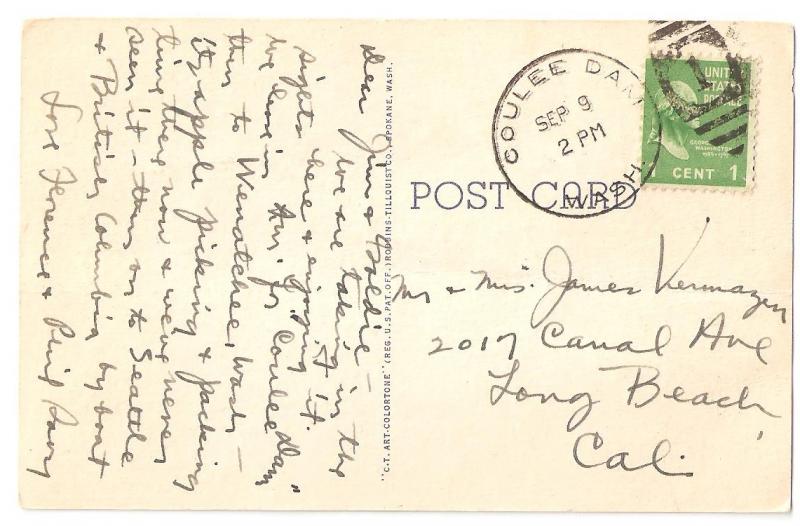 Dear Jim & Goldie –
We are taking in the
sights here & enjoying it.
We love in Am. for Coulee Dam
this to Wenatchee, Wash –
its apple picking & packing
time there now & we've never
seen it – then on to Seattle
& British Columbia by boat
Love Florence & Phil
"C.T. ART-COLORTONE" (REG. U.S. PAT. OFF.) ROBBINS-TILLQUIST CO., SPOKANE, WASH.
COULEE DAM
SEP 9
2 PM
WASH.
UNITED
STATES
POSTAGE
GEORGE
WASHINGTON
1789-1797
CENT 1
POST CARD
Mr & Mrs. James Vermazen
2017 Canal Ave
Long Beach,
Cal.